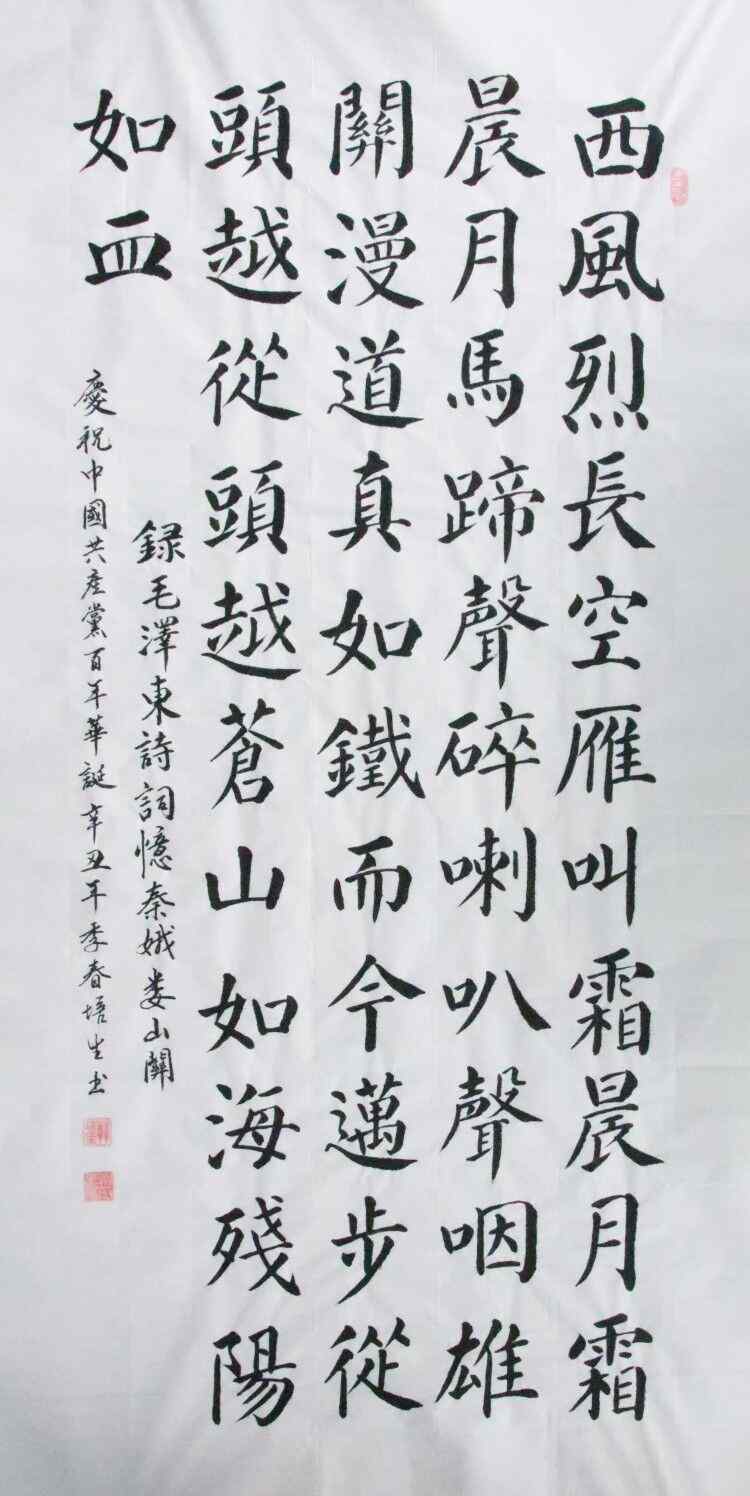 西風烈長空雁叫霜晨月霜
晨月馬蹄聲碎喇叭聲咽雄
關漫道真如鐵而今邁步從
頭越從頭越蒼山如海殘陽
如血
録毛澤東詩詞憶秦娥娄山關
慶祝中國共産黨百年華誕辛丑年季春培生书